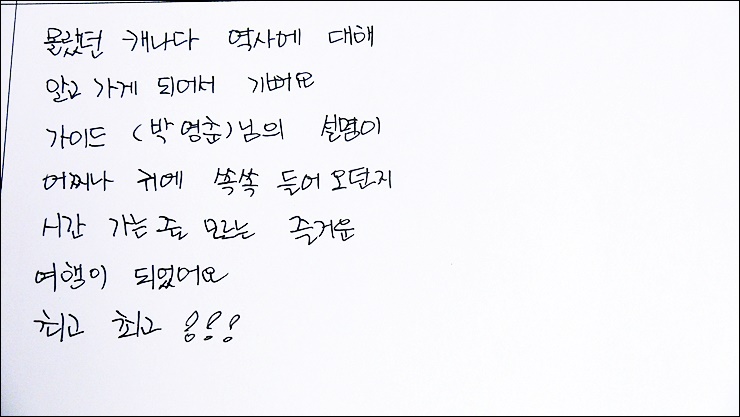 몰랐던 캐나다 역사에 대해
알고 가게 되어서 기뻐요
가이드 (박영춘)님의 설명이
어찌나 귀에 쏙쏙 들어 오던지
시간 가는 줄 모르는 즐거운
여행이 되었어요
최고 최고 !!!